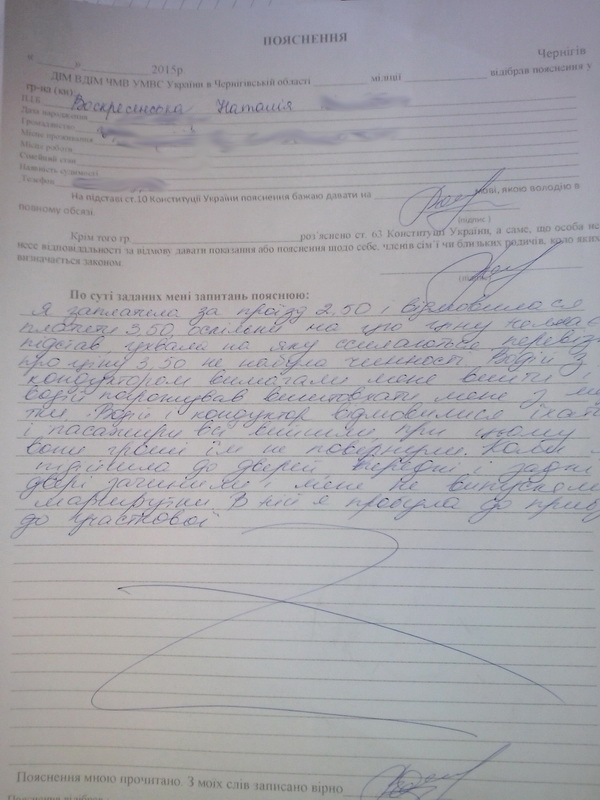 ПОЯСНЕННЯ
« » 2015р. Чернігів
ДІМ ВДІМ ЧМВ УМВС України в Чернігівській області міліції відібрав пояснення у
гр-на (ки):
П.І.Б. Воскресенська Наталія
Дата народження
Громадянство
Місце проживання
Місце роботи
Сімейний стан
Наявність судимості
Телефон
На підставі ст.10 Конституції України пояснення бажаю давати на мові, якою володію в
повному обсязі.
(підпис)
Крім того гр. роз'яснено ст. 63 Конституції України, а саме, що особа не
несе відповідальності за відмову давати показання або пояснення щодо себе, членів сім'ї чи близьких родичів, коло яких
визначається законом.
По суті заданих мені запитань поясною:
Я заплатила за проїзд 2.50 і відмовилася
платити 3.50 оскільки на цю ціну немає
підстав ухвала на яку ссилаються
про ціну 3,50 не набула чинності. Водій з
кондуктором вимагали мене вийти і
водій погрожував виштовхати мене з
Водій і кондуктор відмовилися їхати
і пасажири всі вийшли при цьому
вони гроші їм не повернули. Коли я
підійшла до дверей передні і задні
двері зачинили і мене не випускали
маршрутки. В ній я пробула до
до
Пояснення мною прочитано. З моїх слів записано вірно
Пояснення відібрав